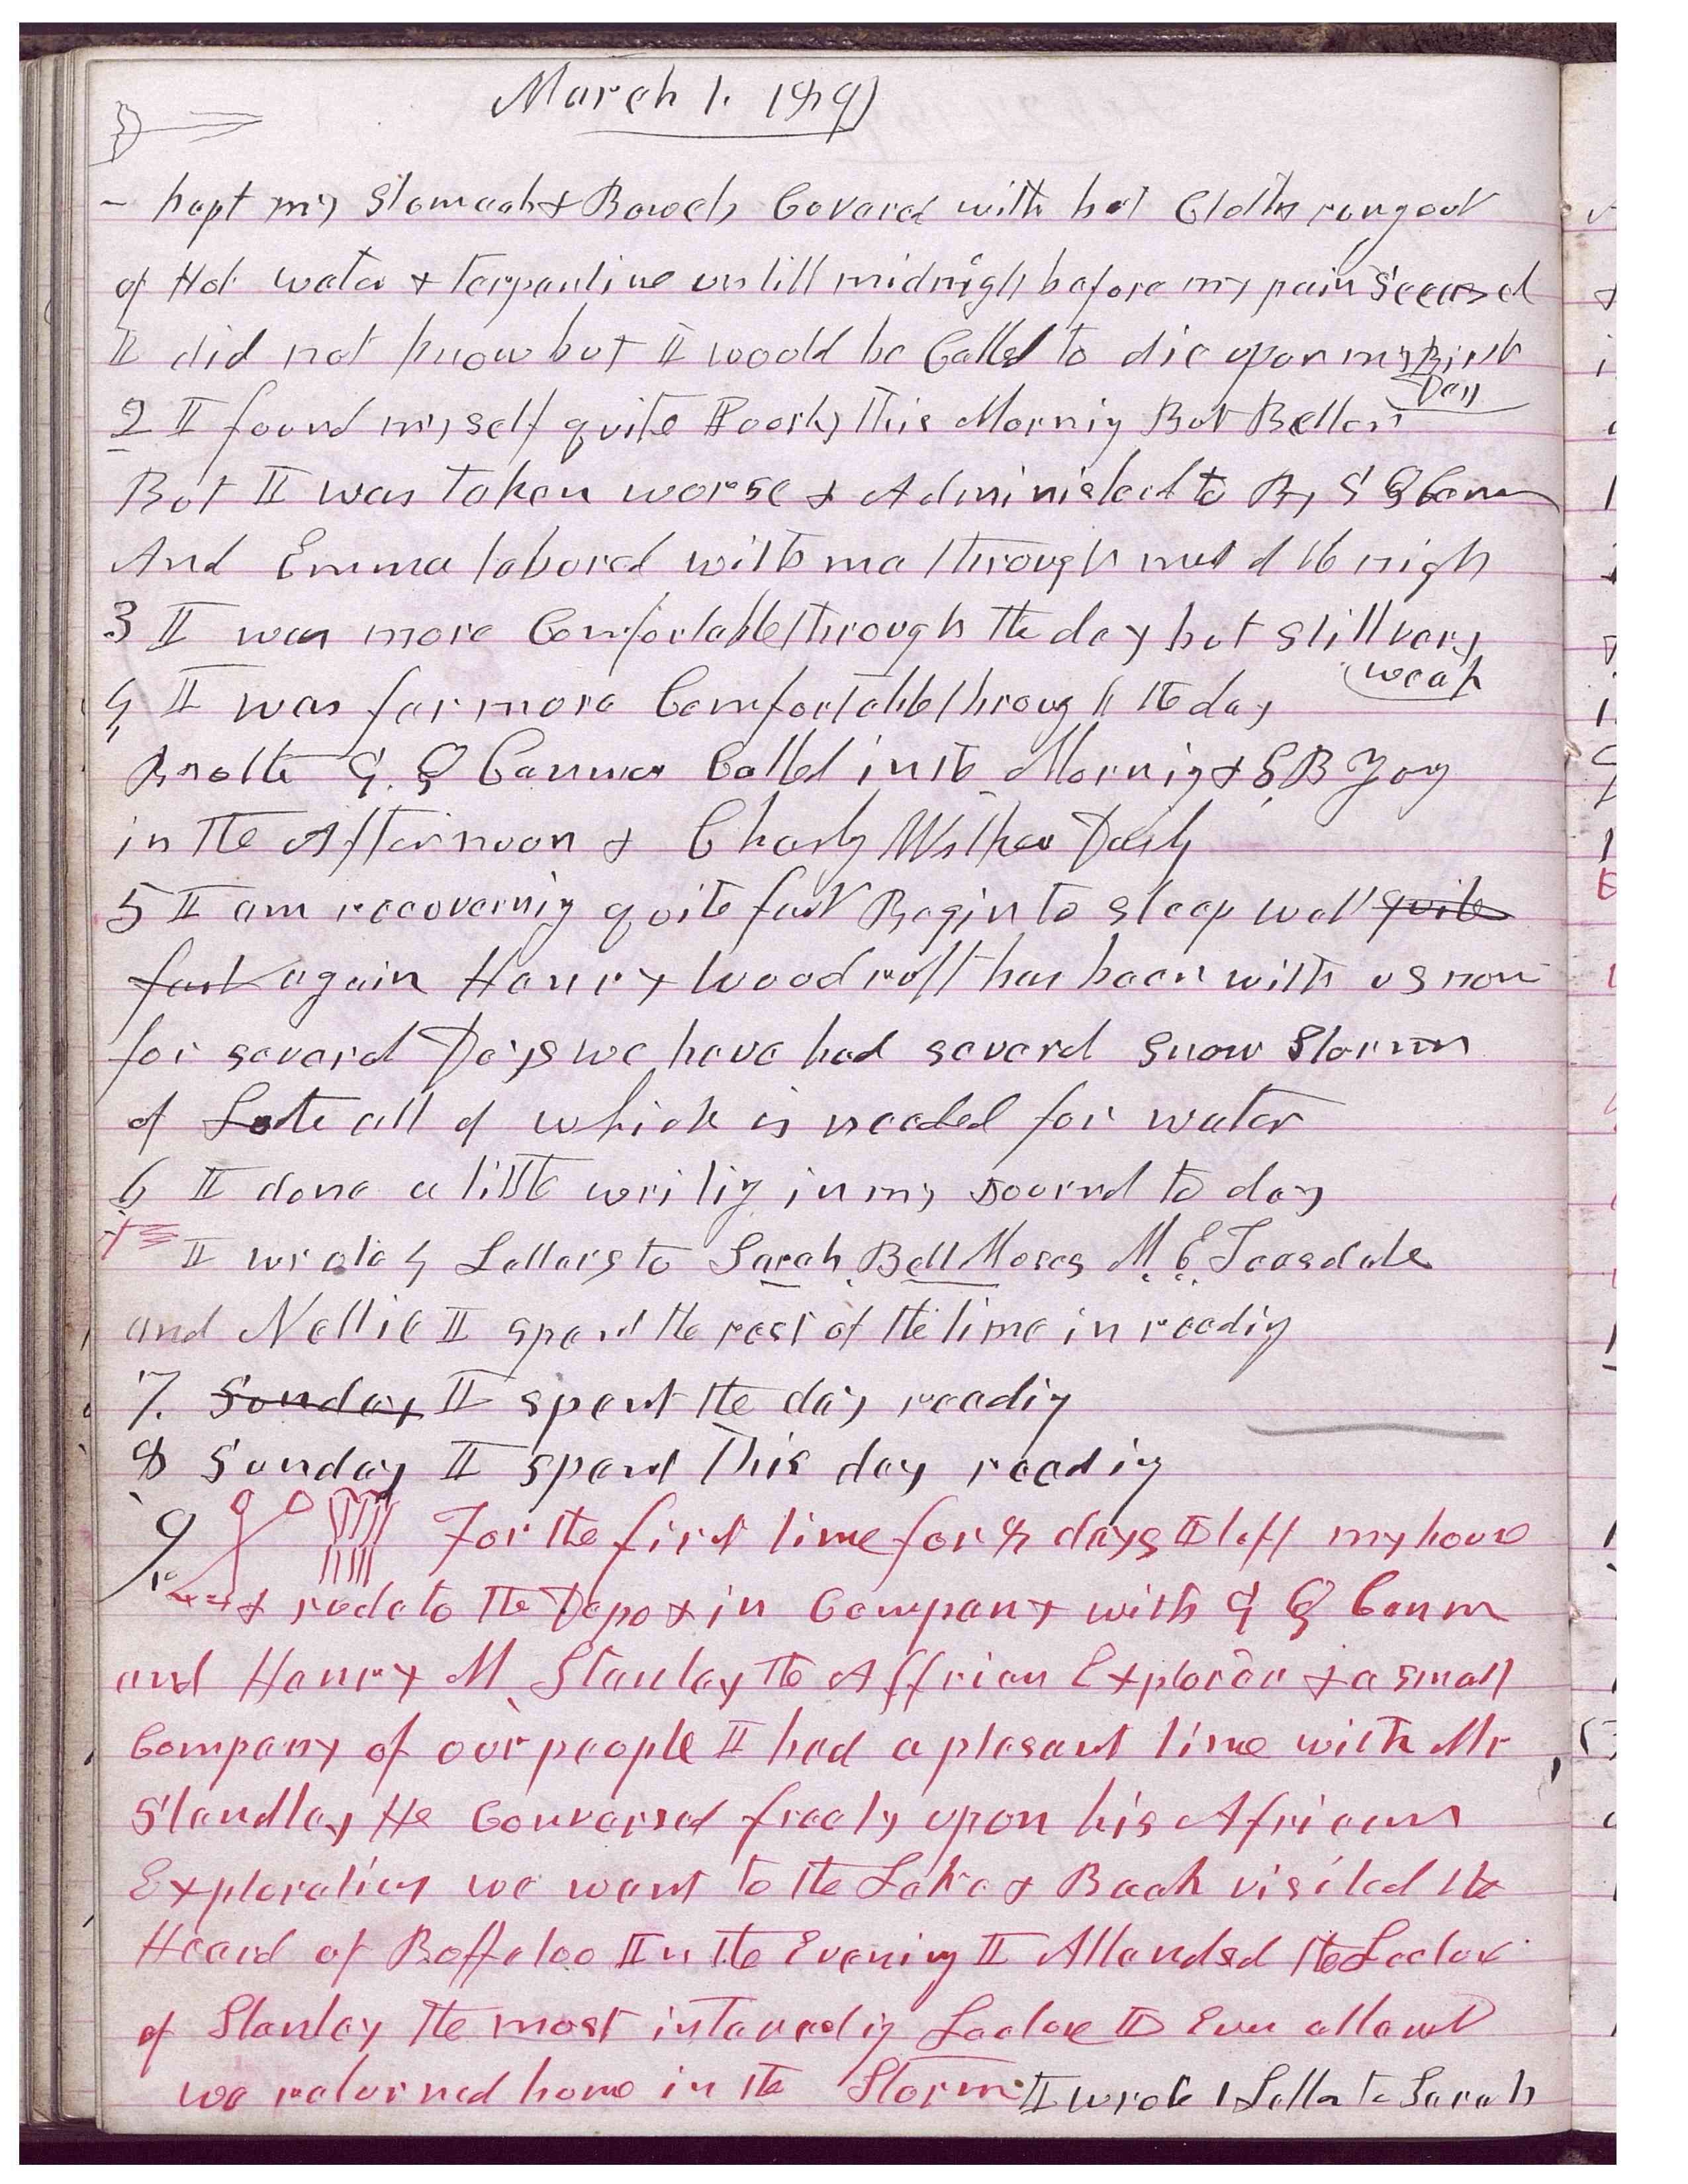 March 1. 1891
- kept my Stomach & Bowels Covered with hot Cloths rung out
of Hot water & terpentine untill midnigh before my pain Ceased
I did not know but I would be Called to die upon my Birth
Day
2 I found myself quite Poorly this Morning But Better
But I was taken worse & Administed to By G Q Cannon
And Emma labored with me through much of the nigh
3 I was more Comfortable through the day but still very
weak
4 I was far more Comfortable through the day
Brother G. Q Cannon Called in the Morning & S B Yong
in the Afternoon & Charly Wilken Daily
5 I am recovering quite fast Begin to sleep well quite
fast again Henry Woodruff has been with us now
for several Days we have had several snow Storms
of Late all of which is needed for water
6 I done a little writing in my Journal to day
I wrote 4 Letters to Sarah, Bell Moses M. E. Teasdale
and Nellie I spent the rest of the time in reading
7. Sunday I spent the day reading
8 Sunday I spent this day reading
9 For the first time for 8 days I left my house
& rode to the Depo & in Company with G Q Cannon
and Henry M Stanley the Affrican Explorer & a small
Company of our people I had a plesant time with Mr
Standley He Conversed freely upon his African
Explorations we went to the Lake & Back visited the
Heard of Buffaloo In the Evening I Attended the Lectur
of Stanley the most interesting Lecture I Ever attend
we returned home in the Storm I wrote 1 Letter to Sarah